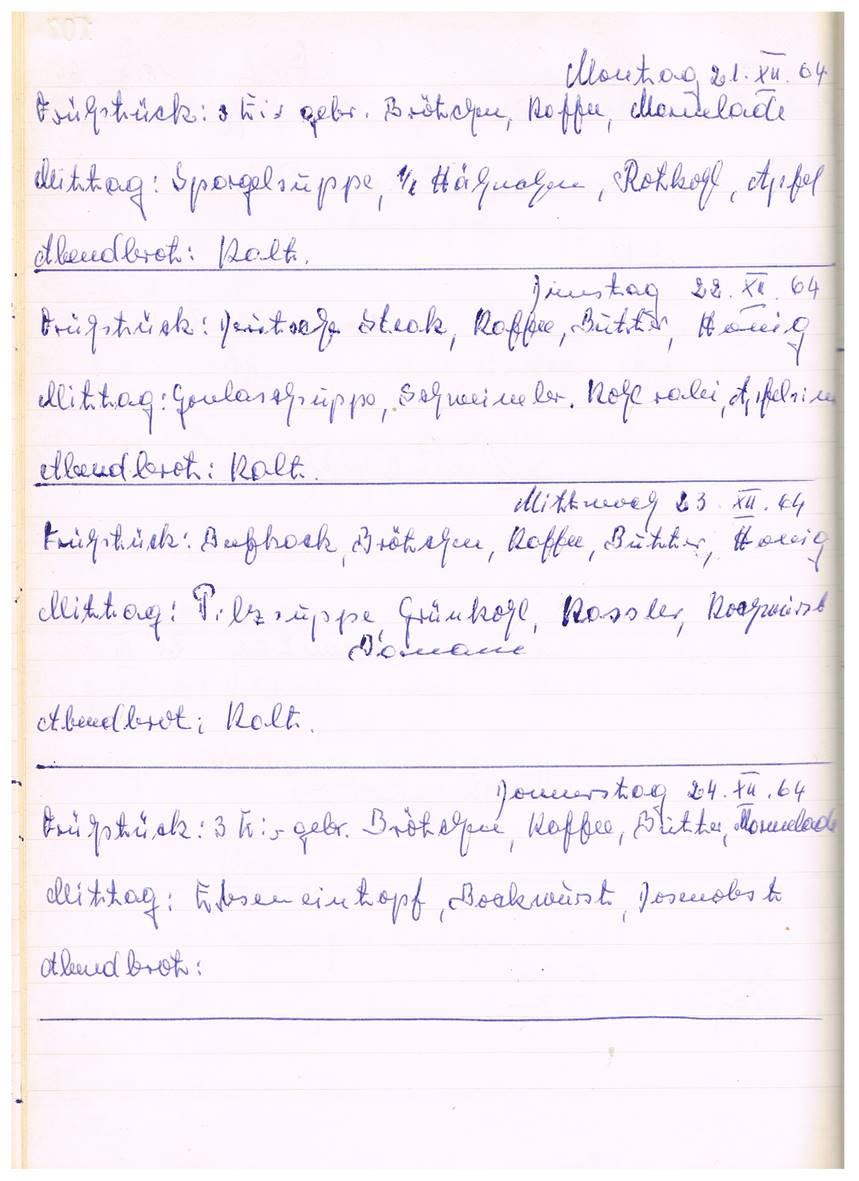 Montag 21. XII. 64
Frühstück: 3 Eier gebr. Brötchen, Kaffee, Marmelade
Mittag: Spargelsuppe, 1/2 Hähnchen, Rotkohl, Apfel
Abendbrot: Kalt.
Dienstag 22. XII. 64
Frühstück: Deutsche Steak, Kaffee, Butter, Honig
Mittag: Goulaschsuppe, Schweinebr. Kohlrabi, Apfelsine
Abendbrot: Kalt.
Mittwoch 23. XII. 64
Frühstück: Brötchen, Kaffee, Butter, Honig
Mittag: Pilzsuppe, Grünkohl, Kassler, Kochwurst
Banane
Abendbrot: Kalt.
Donnerstag 24. XII. 64
Frühstück: 3 Eier gebr. Brötchen, Kaffee, Butter, Marmelade
Mittag: Erbseneintopf, Bockwurst, Dosenobst
Abendbrot: